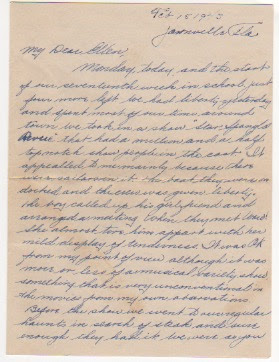 Oct 18 1943
Jacksonville Fla
My Dear Ellen,
Monday, today, and the start
of our seventeenth week in school just
four more left. We had liberty yesterday
and spent most of our time around
town. We took in a show Star Spangled
that had a million and a half
top notch show people in the cast. It
appealled to me mainly because there
were sailors in it. The boat they were on
docked and the crew was given liberty.
the boy called up his girl friend and
arranged a meeting. When they met
she almost tore him apart with her
mild display of tenderness. It was OK
from my point of view although it was
more or less of a musical variety show
something that is very unconventional in
the movies from my own observations.
Before the show we went to our regular
haunts in search of steak and sure
enough they had it. we were so you